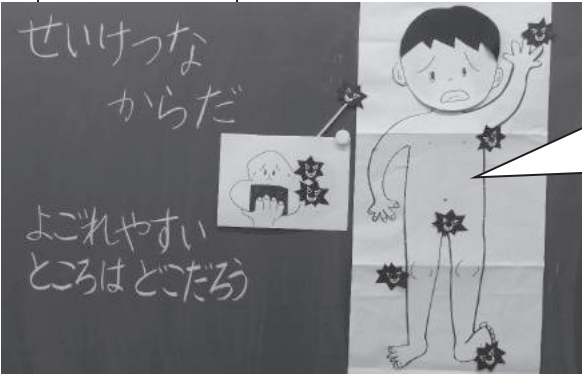 せいけつな
からだ
よごれやすい
ところはどこだろう